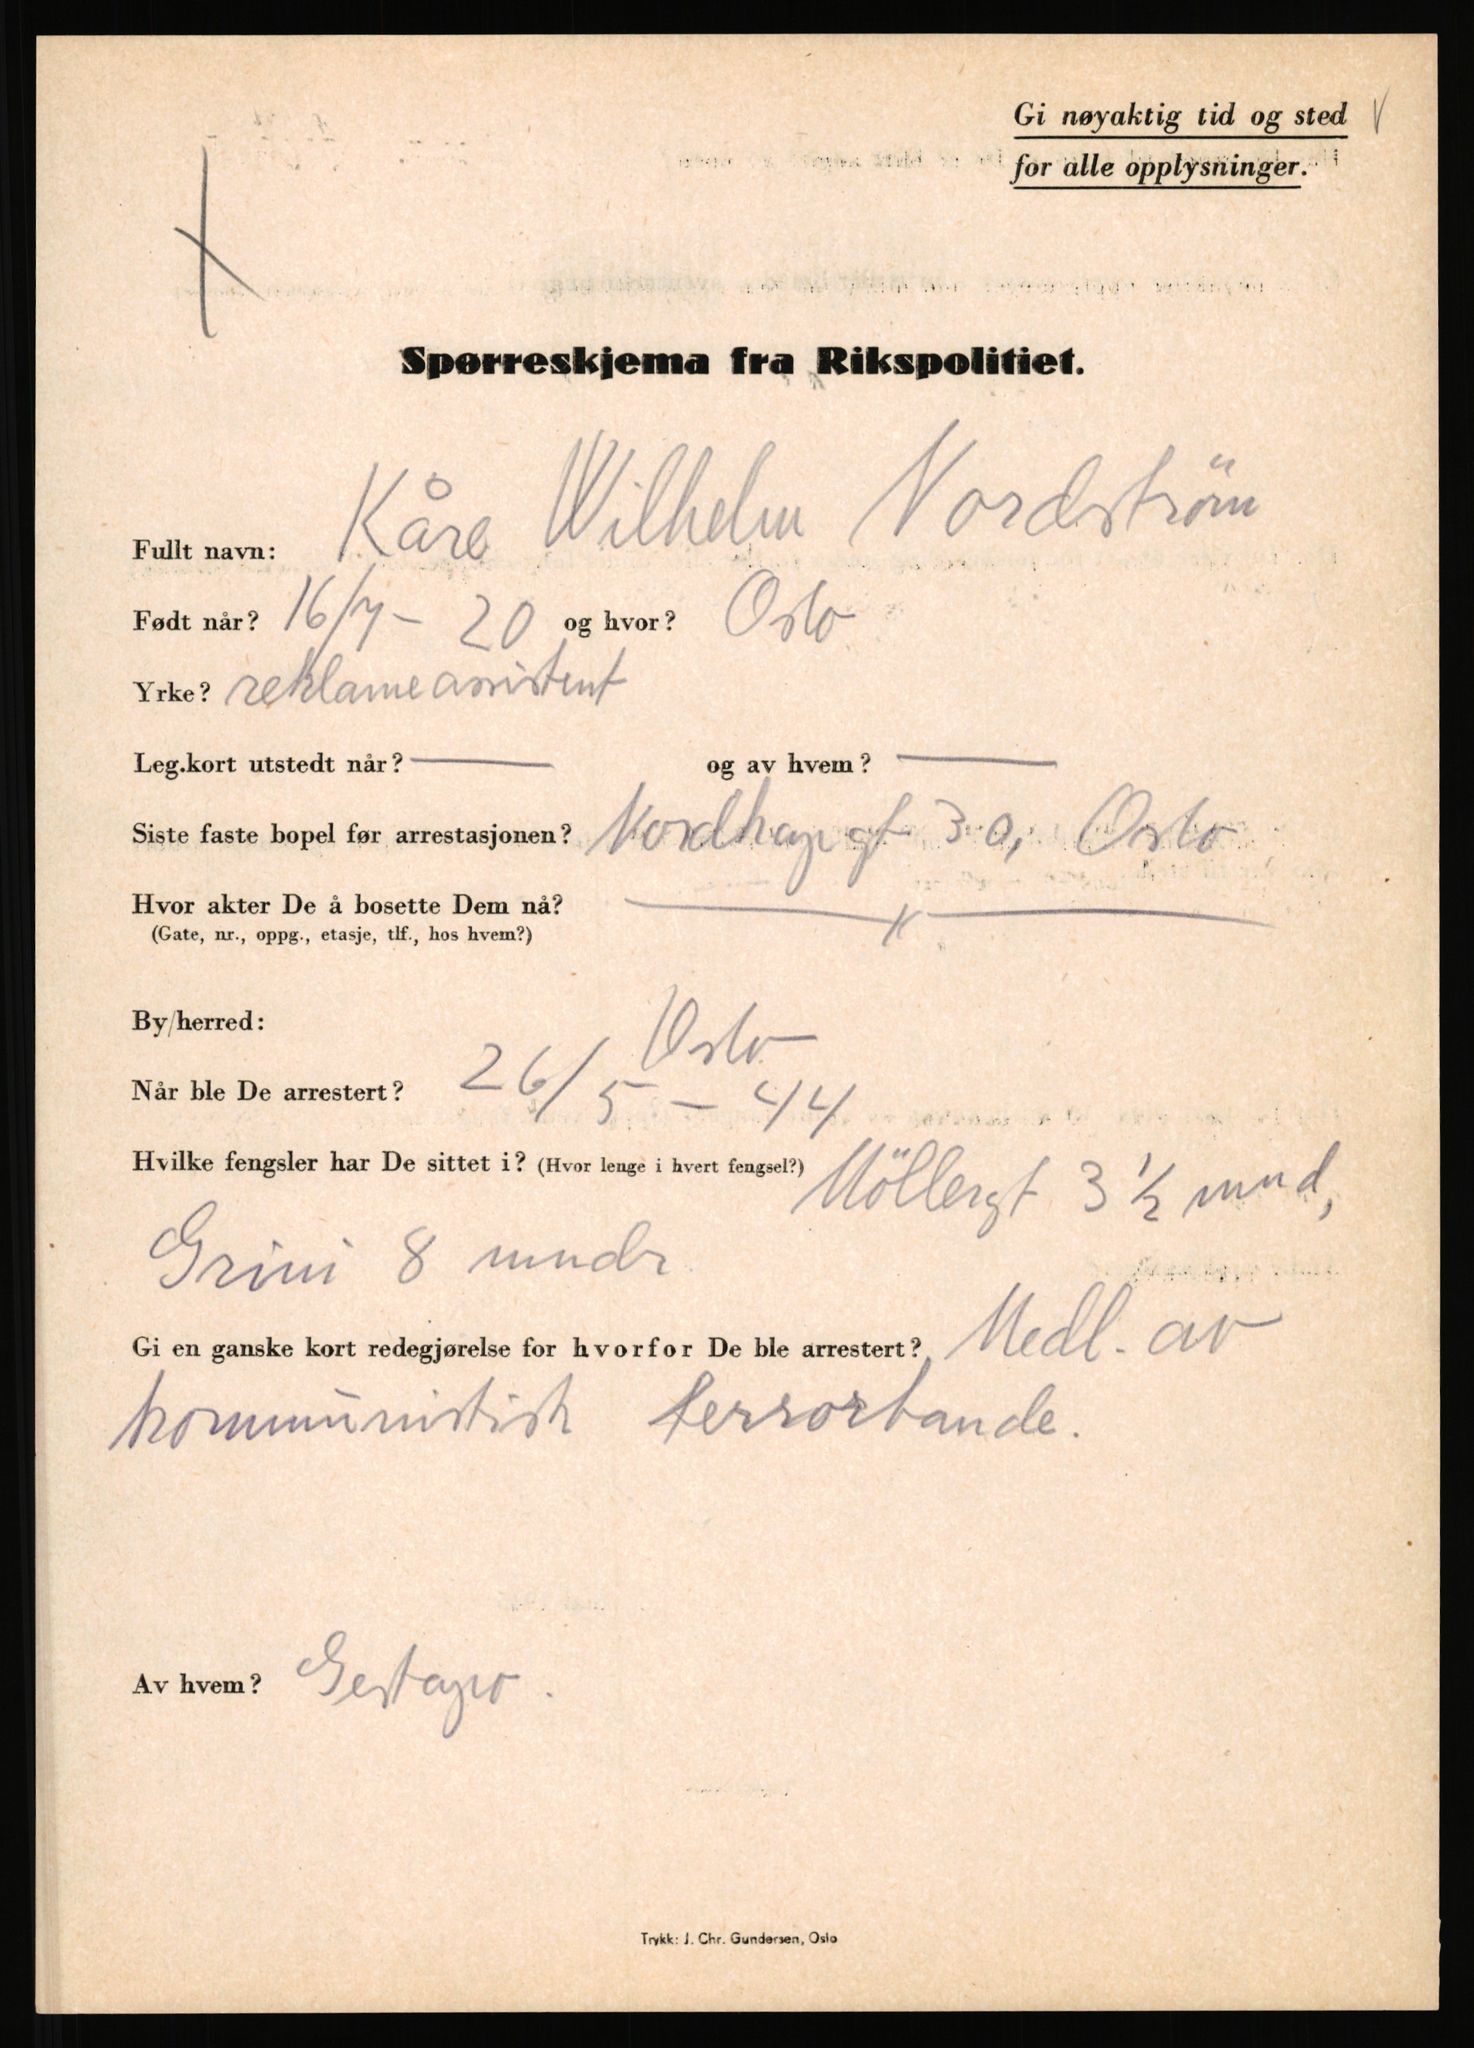 Gi nøyaktig tid og sted
for alle opplysninger.
Spørreskjema fra Rikspolitiet.
Fullt navn: Kåre Wilhelm Nordström
Født når? 16/7 - 20 og hvor? Oslo
Yrke? reklameassistent
Leg.kort utstedt når? — og av hvem? —
Siste faste bopel før arrestasjonen? Nordhapgt 30, Oslo
Hvor akter De å bosette Dem nå?
(Gate, nr., oppg., etasje, tlf., hos hvem?)
By/herred: Oslo
Når ble De arrestert? 26/5 - 44
Hvilke fengsler har De sittet i? (Hvor lenge i hvert fengsel?) Möllergt 3 ½ mnd,
Grini 8 mndr
Gi en ganske kort redegjørelse for hvorfor De ble arrestert? Medl. av
kommunistisk terrorbande.
Av hvem? Gestapo.
Trykk: J. Chr. Gundersen, Oslo